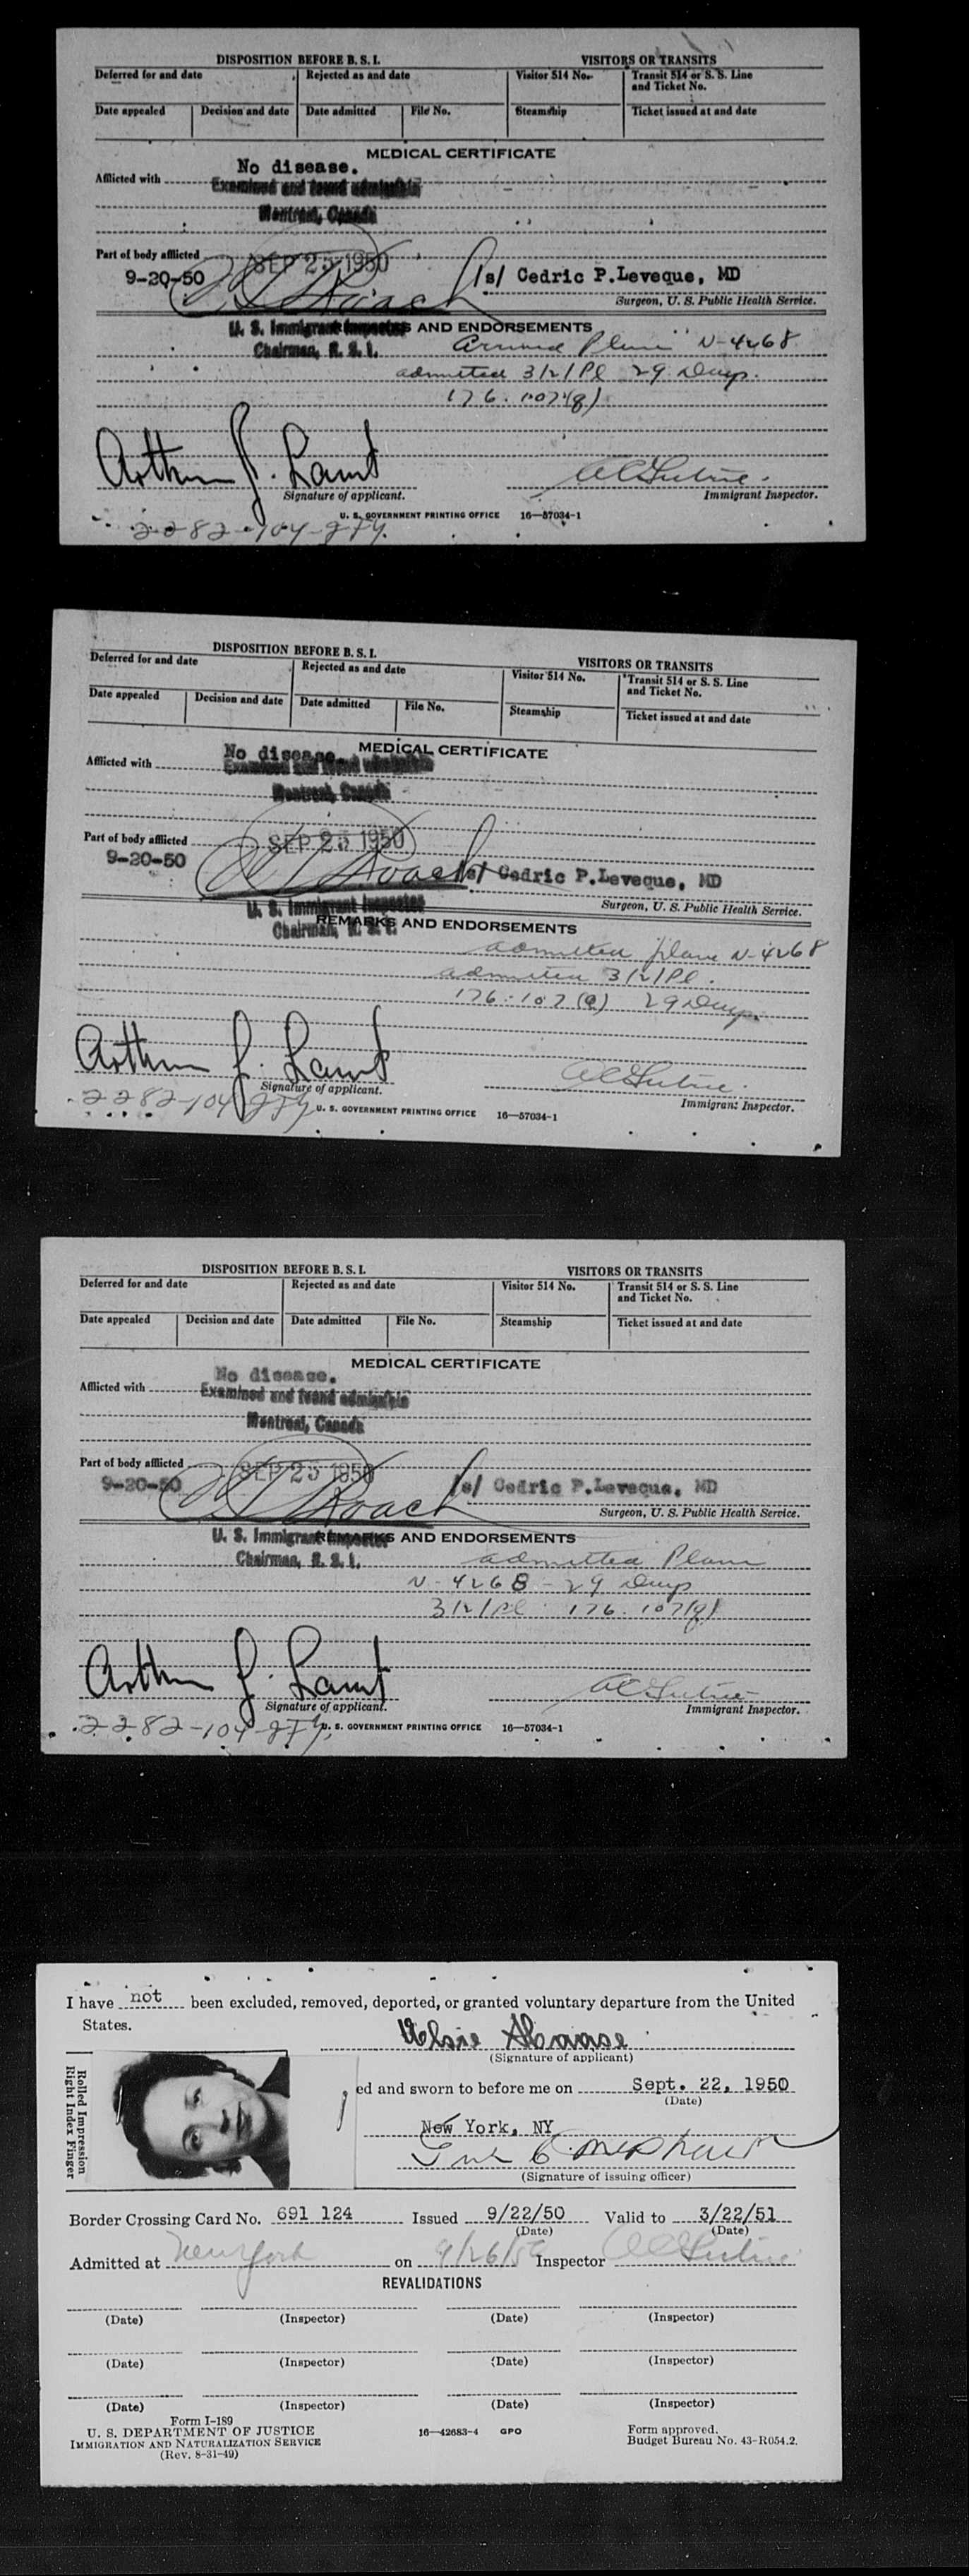 DISPOSITION BEFORE B. S. I. VISITORS OR TRANSITS
Deferred for and date Rejected as and date Visitor 514 No. Transit 514 or S. S. Line and Ticket No.
Date appealed Decision and date Date admitted File No. Steamship Ticket issued at and date
MEDICAL CERTIFICATE
No disease.
Afflicted with Examined and found admissible
Montreal, Canada
Part of body afflicted SEP 25 1950
9-20-50 /s/ Cedric P.Leveque, MD
Surgeon, U. S. Public Health Service.
U. S. Immigrant Inspector AND ENDORSEMENTS
Chairman, B. S. I. Plane N-4268
admitted 3/2/Pl 29
176.107(q)
Arthur J.
Signature of applicant. Immigrant Inspector.
U. S. GOVERNMENT PRINTING OFFICE 16—57034-1
2282-104-
DISPOSITION BEFORE B. S. I. VISITORS OR TRANSITS
Deferred for and date Rejected as and date Visitor 514 No. Transit 514 or S. S. Line and Ticket No.
Date appealed Decision and date Date admitted File No. Steamship Ticket issued at and date
No disease. MEDICAL CERTIFICATE
Afflicted with Examined and found admissible
Montreal, Canada
Part of body afflicted SEP 25 1950
9-20-50 /s/ Cedric P.Leveque, MD
Surgeon, U. S. Public Health Service.
U. S. Immigrant Inspector
Chairman, B. S. I. REMARKS AND ENDORSEMENTS
admitted plane N-4268
admitted 3/2/Pl.
176.107(q) 29
Arthur J.
Signature of applicant. Immigrant Inspector.
2282-104 U. S. GOVERNMENT PRINTING OFFICE 16—57034-1
DISPOSITION BEFORE B. S. I. VISITORS OR TRANSITS
Deferred for and date Rejected as and date Visitor 514 No. Transit 514 or S. S. Line and Ticket No.
Date appealed Decision and date Date admitted File No. Steamship Ticket issued at and date
MEDICAL CERTIFICATE
No disease.
Afflicted with Examined and found admissible
Montreal, Canada
Part of body afflicted SEP 25 1950
9-20-50 /s/ Cedric P.Leveque, MD
Surgeon, U. S. Public Health Service.
U. S. Immigrant Inspector REMARKS AND ENDORSEMENTS
Chairman, B. S. I. admitted Plane
N-4268 - 29
3/2/Pl 176.107(q)
Arthur J.
Signature of applicant. Immigrant Inspector.
2282-104- U. S. GOVERNMENT PRINTING OFFICE 16—57034-1
I have not been excluded, removed, deported, or granted voluntary departure from the United
States.
Elsie
(Signature of applicant)
Rolled Impression
Right Index Finger
ed and sworn to before me on Sept. 22, 1950
(Date)
New York, NY
(Signature of issuing officer)
Border Crossing Card No. 691 124 Issued 9/22/50 Valid to 3/22/51
(Date) (Date)
Admitted at New York on 9/26/50 Inspector
REVALIDATIONS
(Date) (Inspector) (Date) (Inspector)
(Date) (Inspector) (Date) (Inspector)
(Date) (Inspector) (Date) (Inspector)
Form I-189
U. S. DEPARTMENT OF JUSTICE 16—42683-4 GPO Form approved.
IMMIGRATION AND NATURALIZATION SERVICE Budget Bureau No. 43-R054.2.
(Rev. 8-31-49)